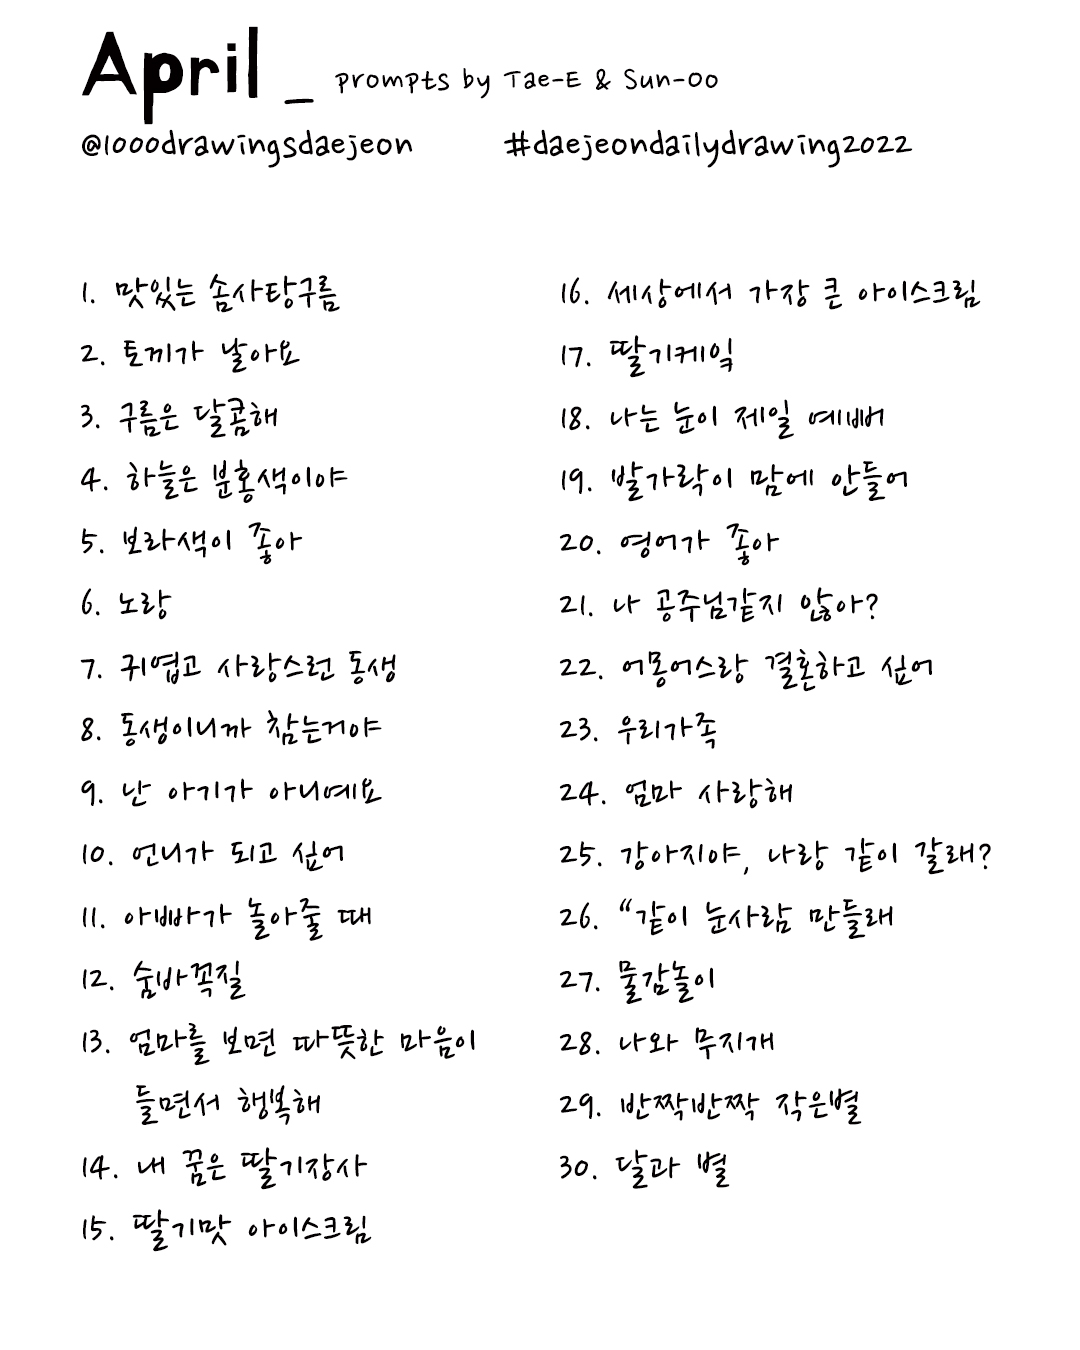 April _ prompts by Tae-E & Sun-Oo
@1000drawingsdaejeon #daejeondailydrawing2022
1. 맛있는 솜사탕구름
2. 토끼가 날아요
3. 구름은 달콤해
4. 하늘은 분홍색이야
5. 보라색이 좋아
6. 노랑
7. 귀엽고 사랑스런 동생
8. 동생이니까 참는거야
9. 난 아기가 아니예요
10. 언니가 되고 싶어
11. 아빠가 놀아줄 때
12. 숨바꼭질
13. 엄마를 보면 따뜻한 마음이
들면서 행복해
14. 내 꿈은 딸기장사
15. 딸기맛 아이스크림
16. 세상에서 가장 큰 아이스크림
17. 딸기케익
18. 나는 눈이 제일 예뻐
19. 발가락이 맘에 안들어
20. 영어가 좋아
21. 나 공주님같지 않아?
22. 어몽어스랑 결혼하고 싶어
23. 우리가족
24. 엄마 사랑해
25. 강아지야, 나랑 같이 갈래?
26. “같이 눈사람 만들래
27. 물감놀이
28. 나와 무지개
29. 반짝반짝 작은별
30. 달과 별